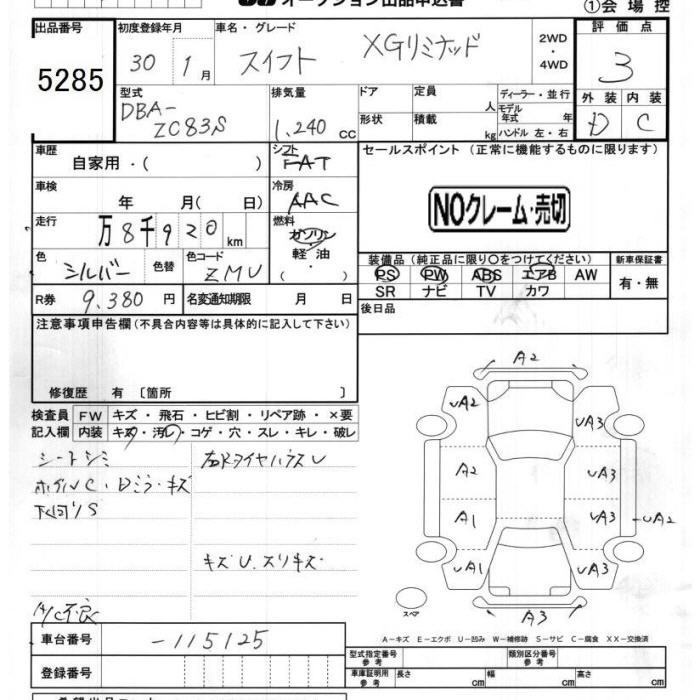 オークション出品申込書
①会場控
出品番号 初度登録年月 車名・グレード 評価点
5285 30 1月 スイフト XGリミテッド 2WD・4WD 3
型式 排気量 ドア 定員 人 ディーラー・並行 外装 内装
DBA-ZC83S 1,240 cc 形状 積載 kg モデル年式 年 ハンドル 左・右 D C
車歴 シフト セールスポイント (正常に機能するものに限ります)
自家用・( ) FAT
車検 年 月( 日) 冷房 AAC NOクレーム・売切
走行 万8千920km 燃料 ガソリン・軽油・
色 シルバー 色替 色コード ZMU
装備品 (純正品に限り○をつけてください) 新車保証書
PS PW ABS エアB AW 有・無
SR ナビ TV カワ
R券 9,380 円 名変通知期限 月 日 後日品
注意事項申告欄(不具合内容等は具体的に記入して下さい)
修復歴 有 〔箇所 〕
検査員 FW キズ・飛石・ヒビ割・リペア跡・×要
記入欄 内装 キズ・汚れ・コゲ・穴・スレ・キレ・破レ
シートシミ
ホイルC・Dミラーキズ
下回りS
キズU、スリキズ
A/C不良
A2
UA2 UA3
A2 UA3
A1 UA3 UA2
UA1 UA3
スペア A3
A-キズ E-エクボ U-凹み W-補修跡 S-サビ C-腐食 XX-交換済
車台番号 -115125
型式指定番号 参考 類別区分番号 参考
登録番号
車庫証明用 参考 長さ cm 幅 cm 高さ cm